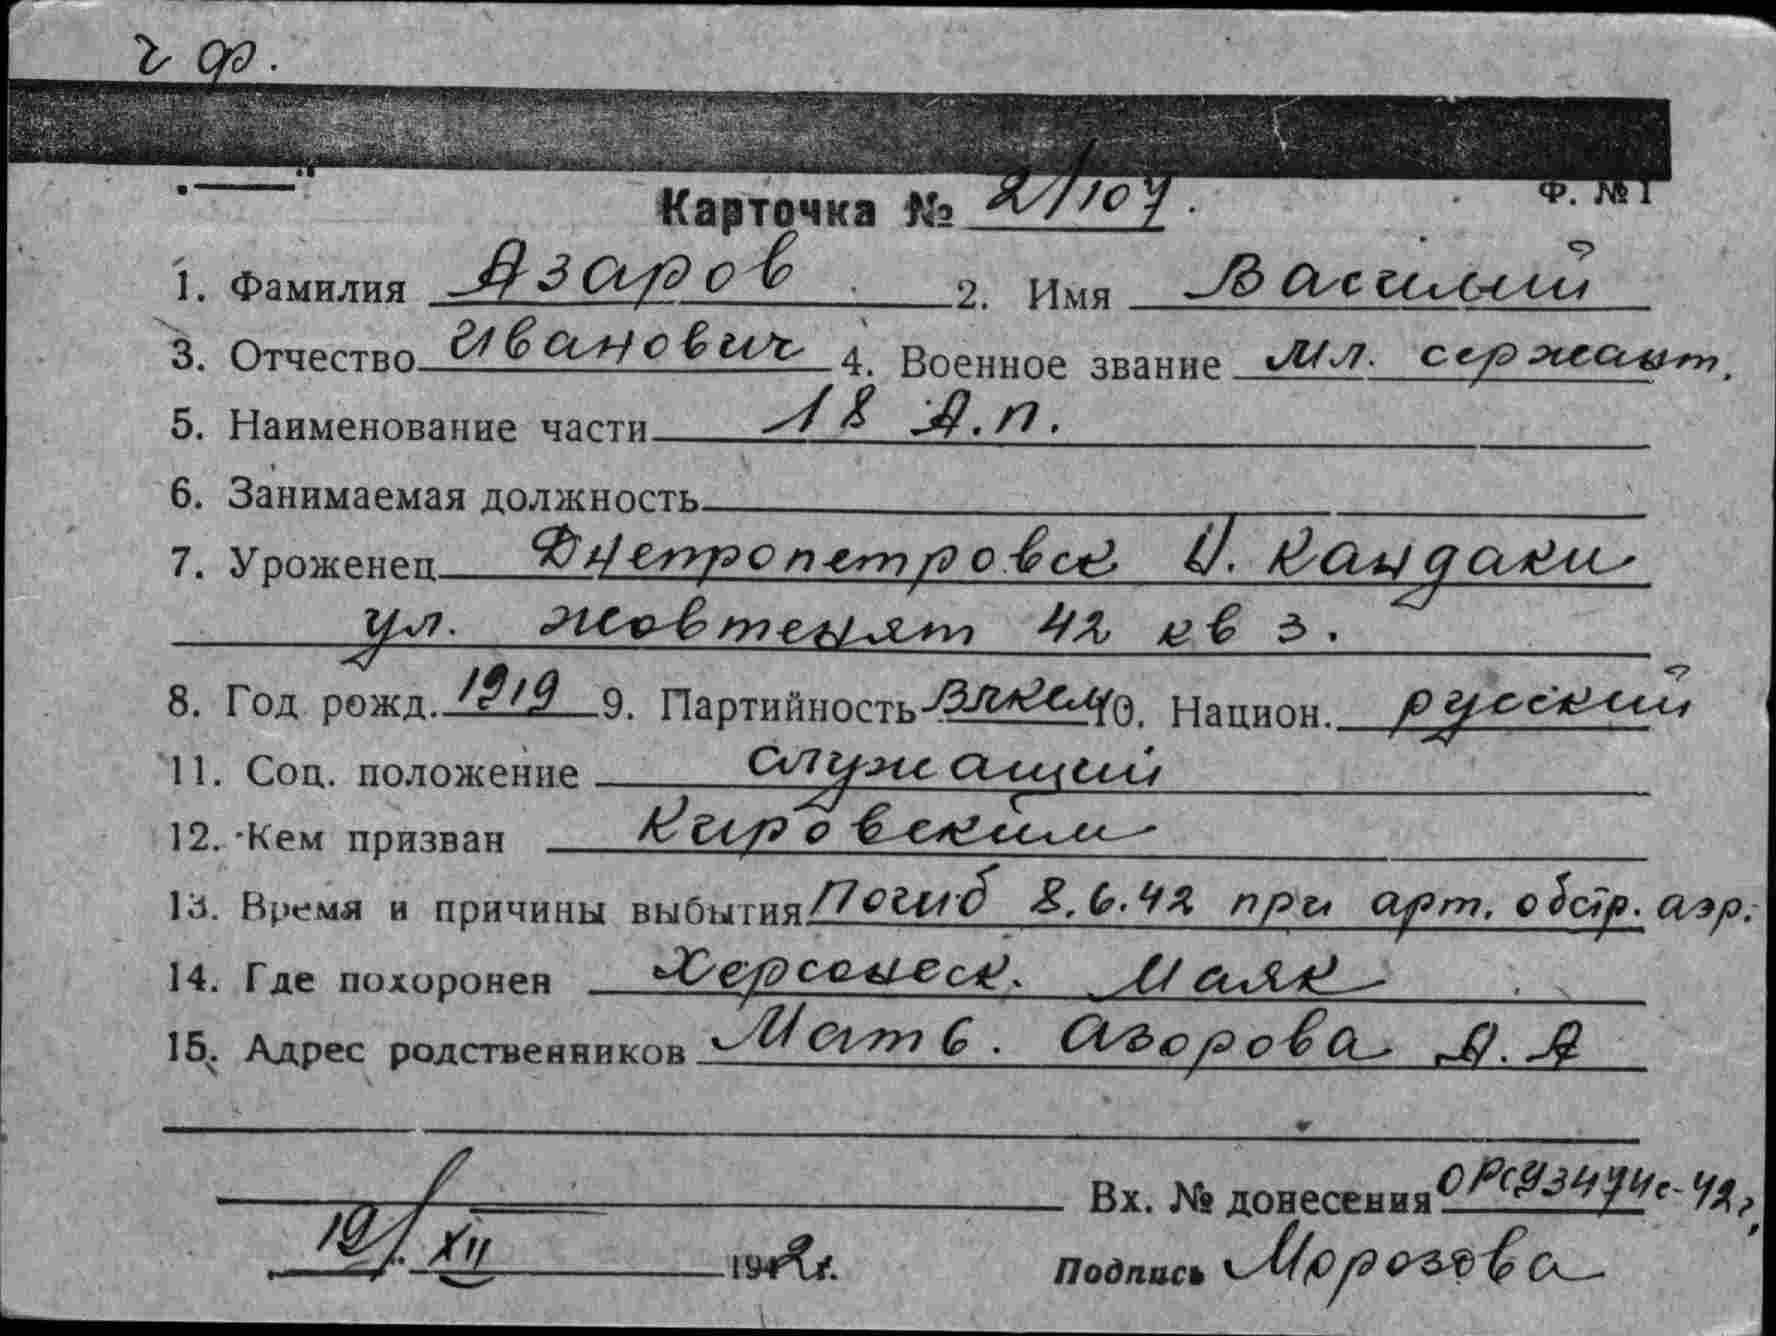 ч ф.
Ф. № 1
Карточка № 2/107.
1. Фамилия Азаров 2. Имя Василий
3. Отчество Иванович 4. Военное звание мл. сержант.
5. Наименование части 18 А.П.
6. Занимаемая должность
7. Уроженец Днепропетровск Н. Кандаки
ул. Жовтенят 42 кв 3.
8. Год рожд. 1919 9. Партийность ВЛКСМ 10. Национ. русский
11. Соц. положение служащий
12. Кем призван Кировским
13. Время и причины выбытия Погиб 8.6.42 при арт. обстр. аэр.
14. Где похоронен Херсонеск. Маяк
15. Адрес родственников Мать. Азорова А. А
Вх. № донесения
19/XII 1942г.
Подпись Морозова